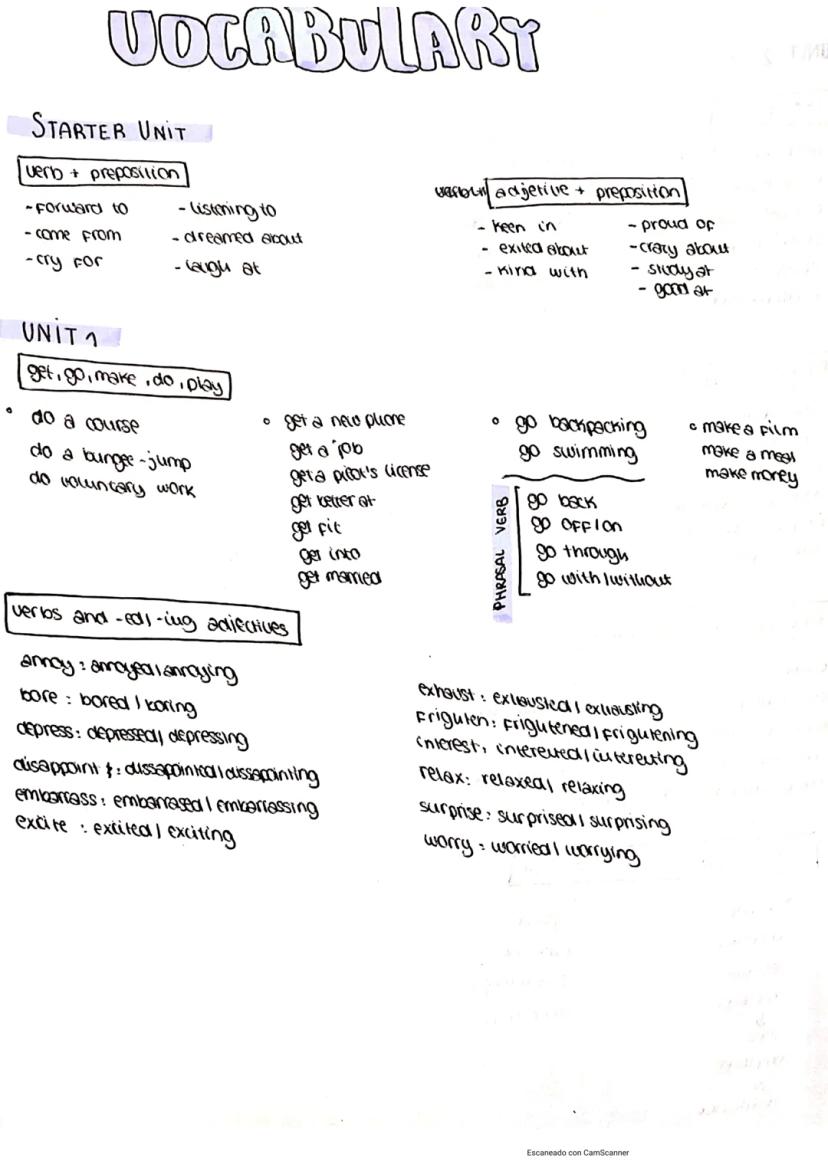 VOCABULARY
STARTER UNIT
verb + preposition
- forward to
- come from
- cry for
- listening to
- dreamed about
- laugh at
adjetive + preposition
- keen in
- exited about
- kind with
- proud of
- crazy about
- study at
- good at
UNIT 1
get, go, make, do, play
do a course
do a bungee-jump
do voluntary work
get a new phone
get a job
get a pilot's license
get better at
get fit
get into
get married
go backpacking
go swimming
PHRASAL VERB
go back
go off/on
go through
go with/without
make a film
make a meal
make money
verbs and -ed/-ing adjectives
annoy: annoyed/annoying
bore: bored/boring
depress: depressed/depressing
disappoint: dissapointed/dissapointing
embarrass: embarrased/embarrassing
excite: excited/exciting
exhaust: exhausted/exhausting
frighten: frightened/frightening
interest: interested/interesting
relax: relaxed/relaxing
surprise: surprised/surprising
worry: worried/worrying
Escaneado con CamScanner